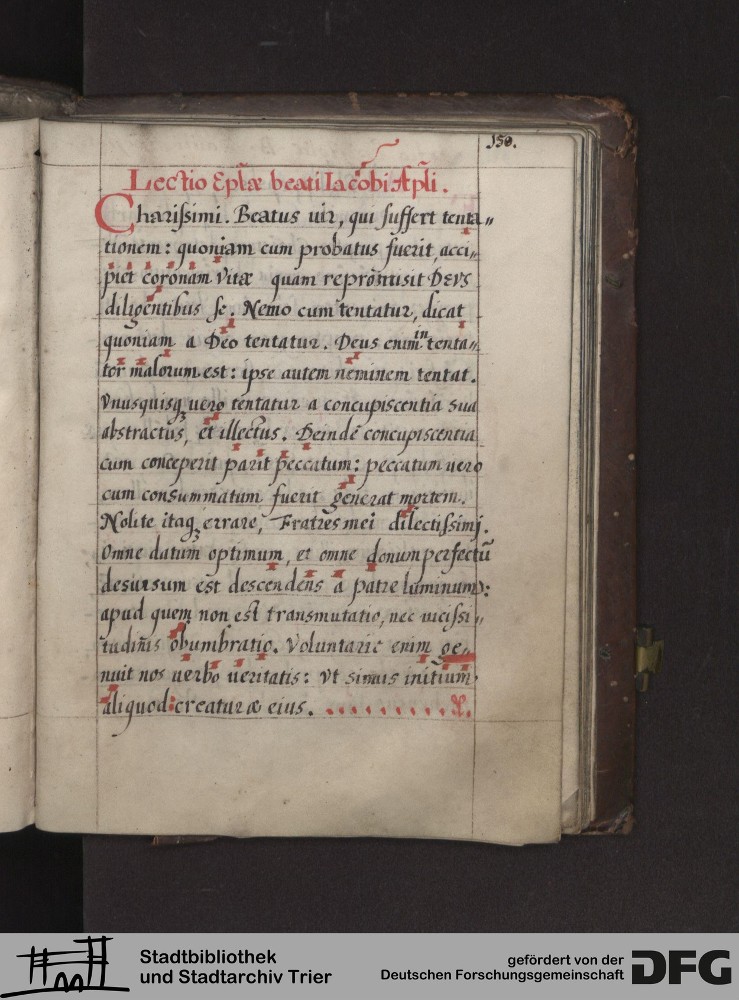 150.
Lectio Eplæ beati Iacobi Apli.
Charissimi. Beatus uir, qui suffert tenta„
tionem: quoniam cum probatus fuerit, acci„
piet coronam vitæ quam repromisit DEVS
diligentibus se. Nemo cum tentatur, dicat
quoniam a Deo tentatur. Deus enim in tenta„
tor malorum est: ipse autem neminem tentat.
Vnusquisq; uero tentatur a concupiscentia sua
abstractus, et illectus. Deinde concupiscentia
cum conceperit parit peccatum: peccatum uero
cum consummatum fuerit generat mortem.
Nolite itaq; errare, Fratres mei dilectissimj.
Omne datum optimum, et omne donum perfectū
desursum est descendens a patre luminum:
apud quem non est transmutatio, nec uicissi„
tudinis obumbratio. Voluntarie enim ge„
nuit nos uerbo ueritatis: vt simus initium
aliquod creaturæ eius.
Stadtbibliothek
und Stadtarchiv Trier
gefördert von der
Deutschen Forschungsgemeinschaft
DFG